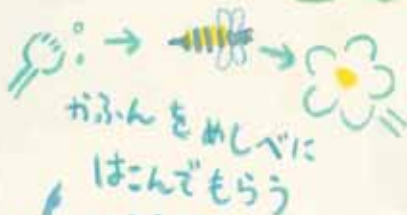 かふんをめしべに
はこんでもらう